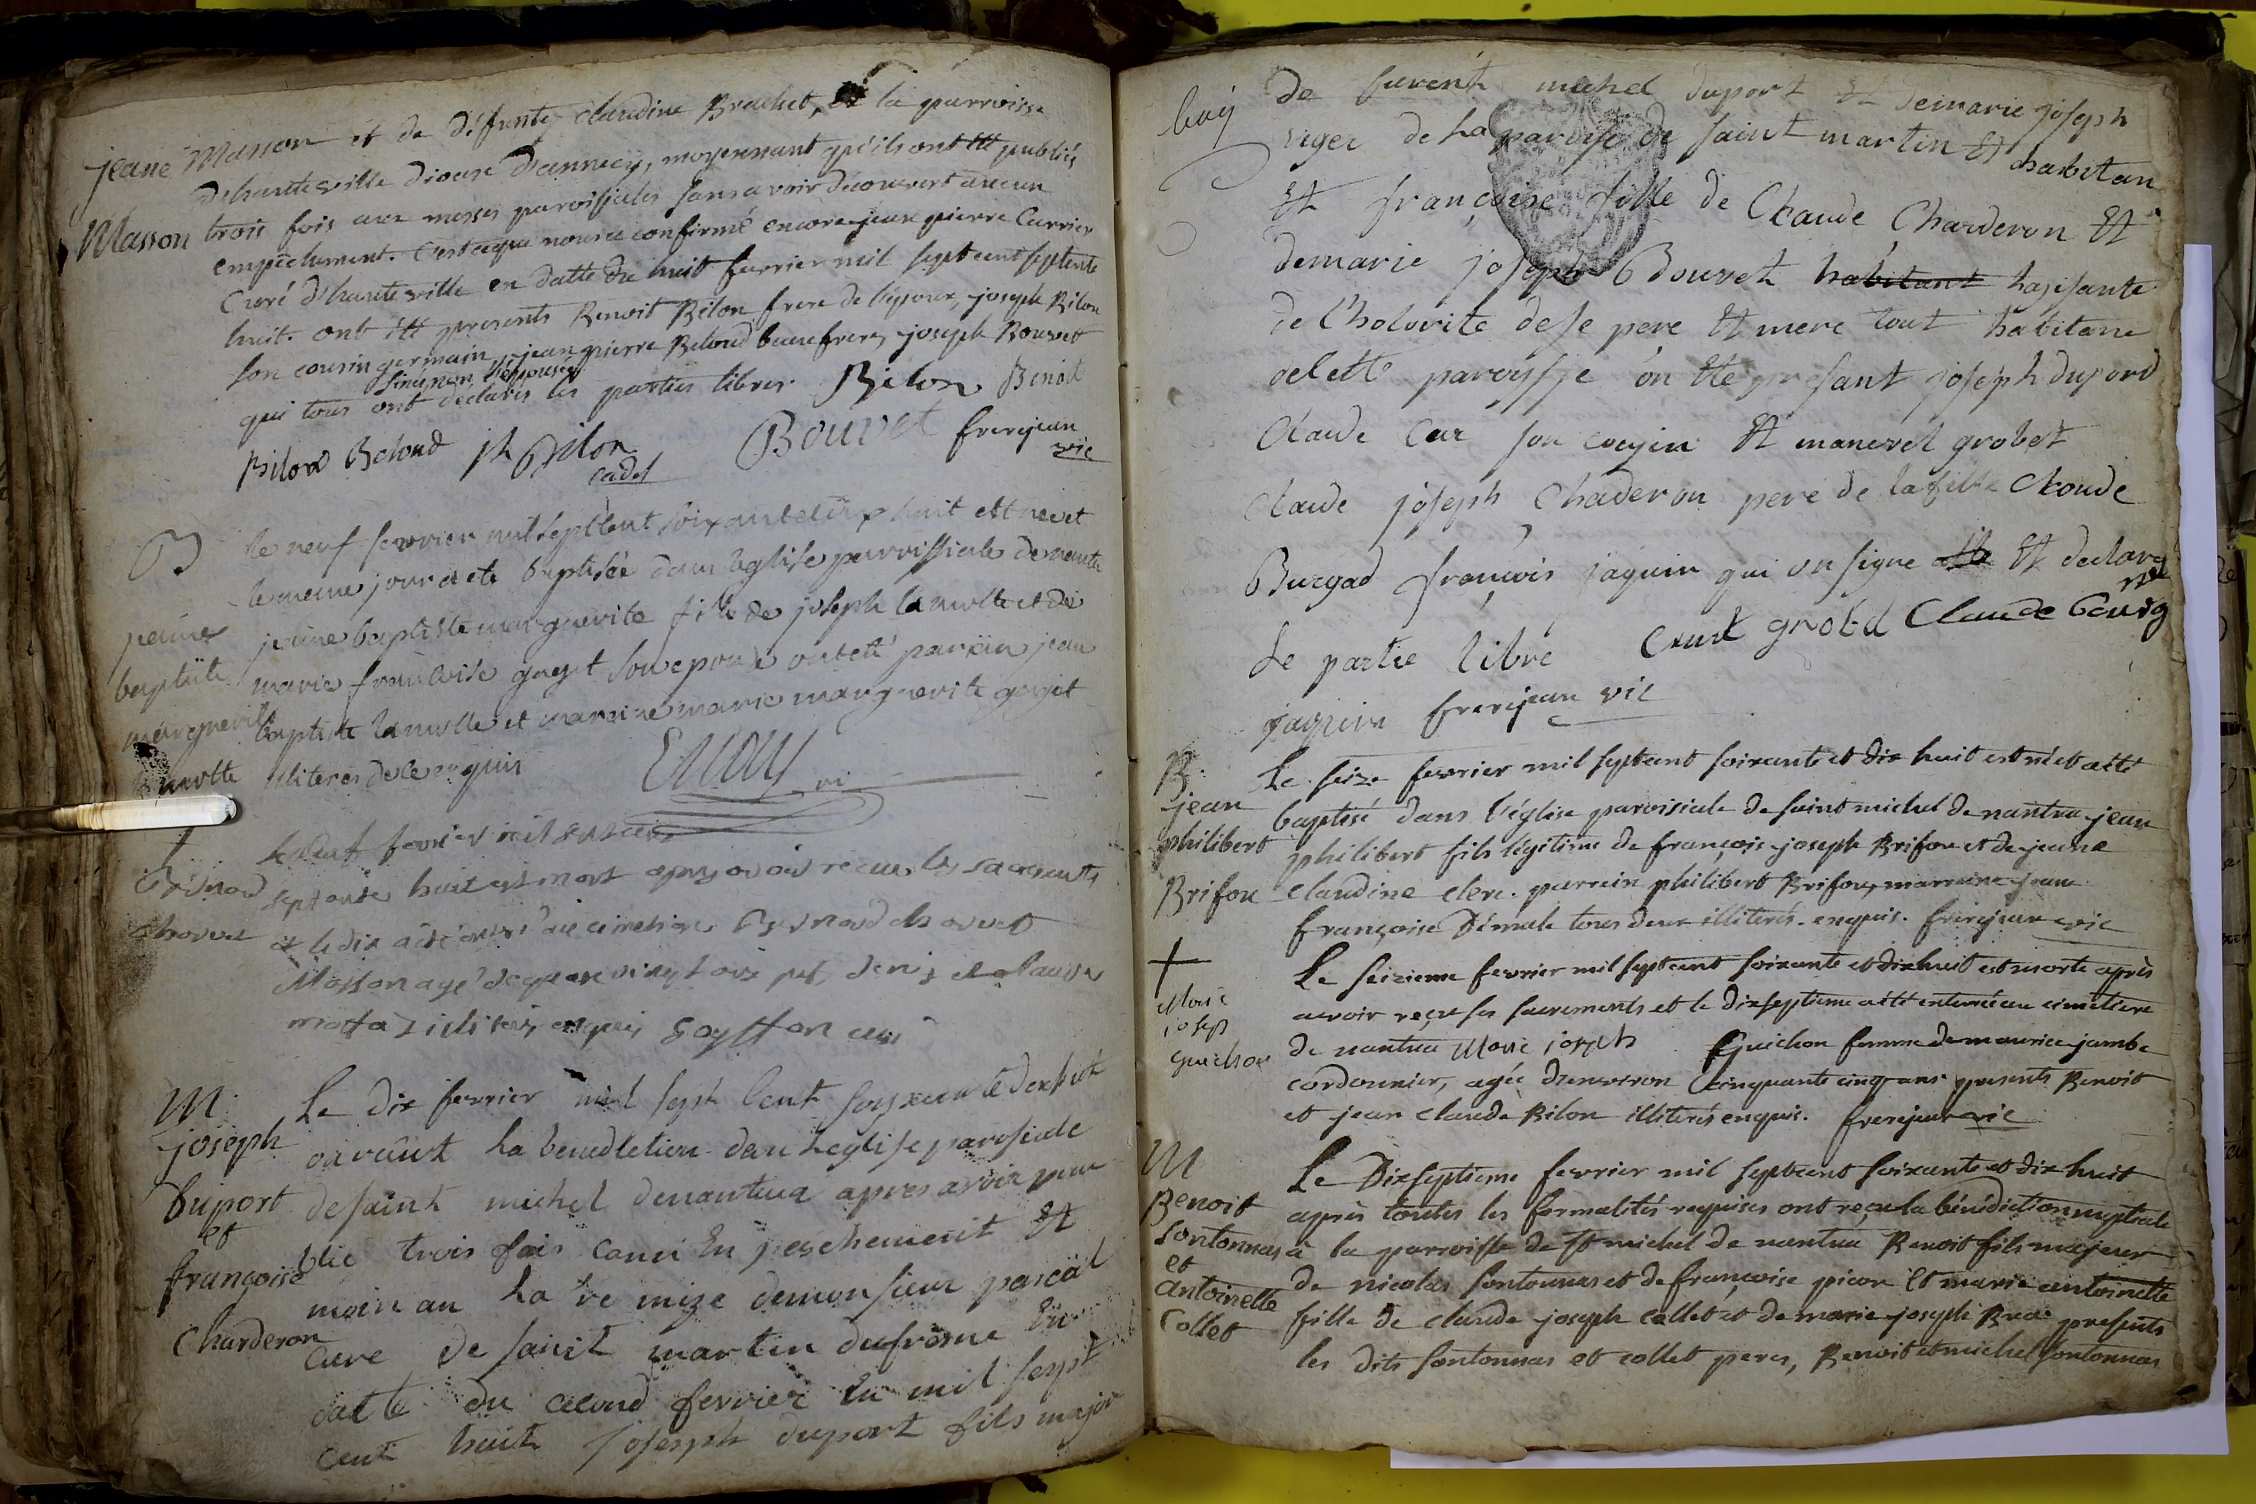 jeane Masson et de défunte claudine Brachet, de la parroisse
d'hauteville diocese D'annecy, moyennant qu'ils ont été publiés
Masson trois fois aux messes paroissiales sans avoir découvert aucun
empêchement. C'est ce que nous a confirmé encore jean pierre Carrier
Curé d'hauteville en datte du huit fevrier mil sept cent septente
huit. ont été presents Benoit Bilon frere de l'époux, joseph Bilon
son cousin germain, jean pierre Beloud beaufrere, joseph Bouvet
sinénon l'épouse
qui tous ont declarés les parties libres. Bilon Benoit
Bilon Beloud jh Bilon Bouvet frerejean
cadet vic
B le neuf fevrier mil sept cent soixante dix huit est née et
le meme jour a eté baptisée dans l'eglise parroissiale de nantua
jeanne jeanne baptiste marguerite fille de joseph lamotte et de
baptiste marie francoise goyet son epouse ont eté parrain jean
marguerite baptiste lamotte et maraine marie marguerite goyet
lamotte illiteres de ce enquis
vi
† le neuf fevrier mil sept cent
Bernard septante huit est mort apres avoir recu les sacrements
chovet et le dix a été enterré au cimetiere Bernard chovet
Masson agé de quatre vingt ans denis et claude
illiteres enquis curé
M Le dix fevrier mil sept Cent soyxante dix huit
joseph on reçut la benedletion dan Leglise parosiale
Duport de saint michel denantua apres avoir pub
et blié trois fois Canci En peschement Et
françoise moin an La re mize demonsieur pascal
Charderon Cure de saint martin dufresne En
datte du cecond fevrier En mil sept
Cent huit Joseph duport fils major
buy de furent michel duport Et demarie joseph
viger de La paroise de saint martin Et
habitan
Et françoise fille de Claude Charderon Et
demarie joseph Bouvet habitant hasisante
de L'hotorite de se pere Et mere tout habitane
de cette paroysse on Ete presant joseph duport
Claude Car son cousin Et manevel grobet
Claude joseph Chaderon pere de la fille Cloude
Burgad françois jaquin qui on signe Et declare
Le partie libre Cint grobet Claude Bourg
jaquin frerejean vic
B. Le seize fevrier mil septcent soixante et dix huit est né et a été
jean baptisé dans l'église paroisiale de saint michel de nantua jean
philibert philibert fils légitime de françois joseph Brifou et de jeane
Brifou claudine clerc. parrein philibert Brifou, marreine jeane
françoise Démale tous deux illiterés enquis. frerejean vic
† Le seizieme fevrier mil septcent soixante et dix huit est morte après
Marie avoir reçu ses sacrements et le dixseptieme a été enterrée au cimetiere
joseph de nantua Marie joseph Guichon femme de maurice jambe
Guichon cordonnier, agée d'environ cinquante cinq ans. presents Benoit
et jean claude Bilon illiterés enquis. frerejean vic
M Le Dixseptieme fevrier mil septcent soixante et dix huit
Benoit après toutes les formalités requises ont reçu la bénédiction nuptiale
sontonnas à la parroisse de St michel de nantua Benoit fils majeur
et de nicolas sontonnas et de françoise picon et marie antoinette
antoinette fille de claude joseph collet et de marie joseph presents
Collet les dits sontonnas et collet peres, Benoit et michel sontonnas